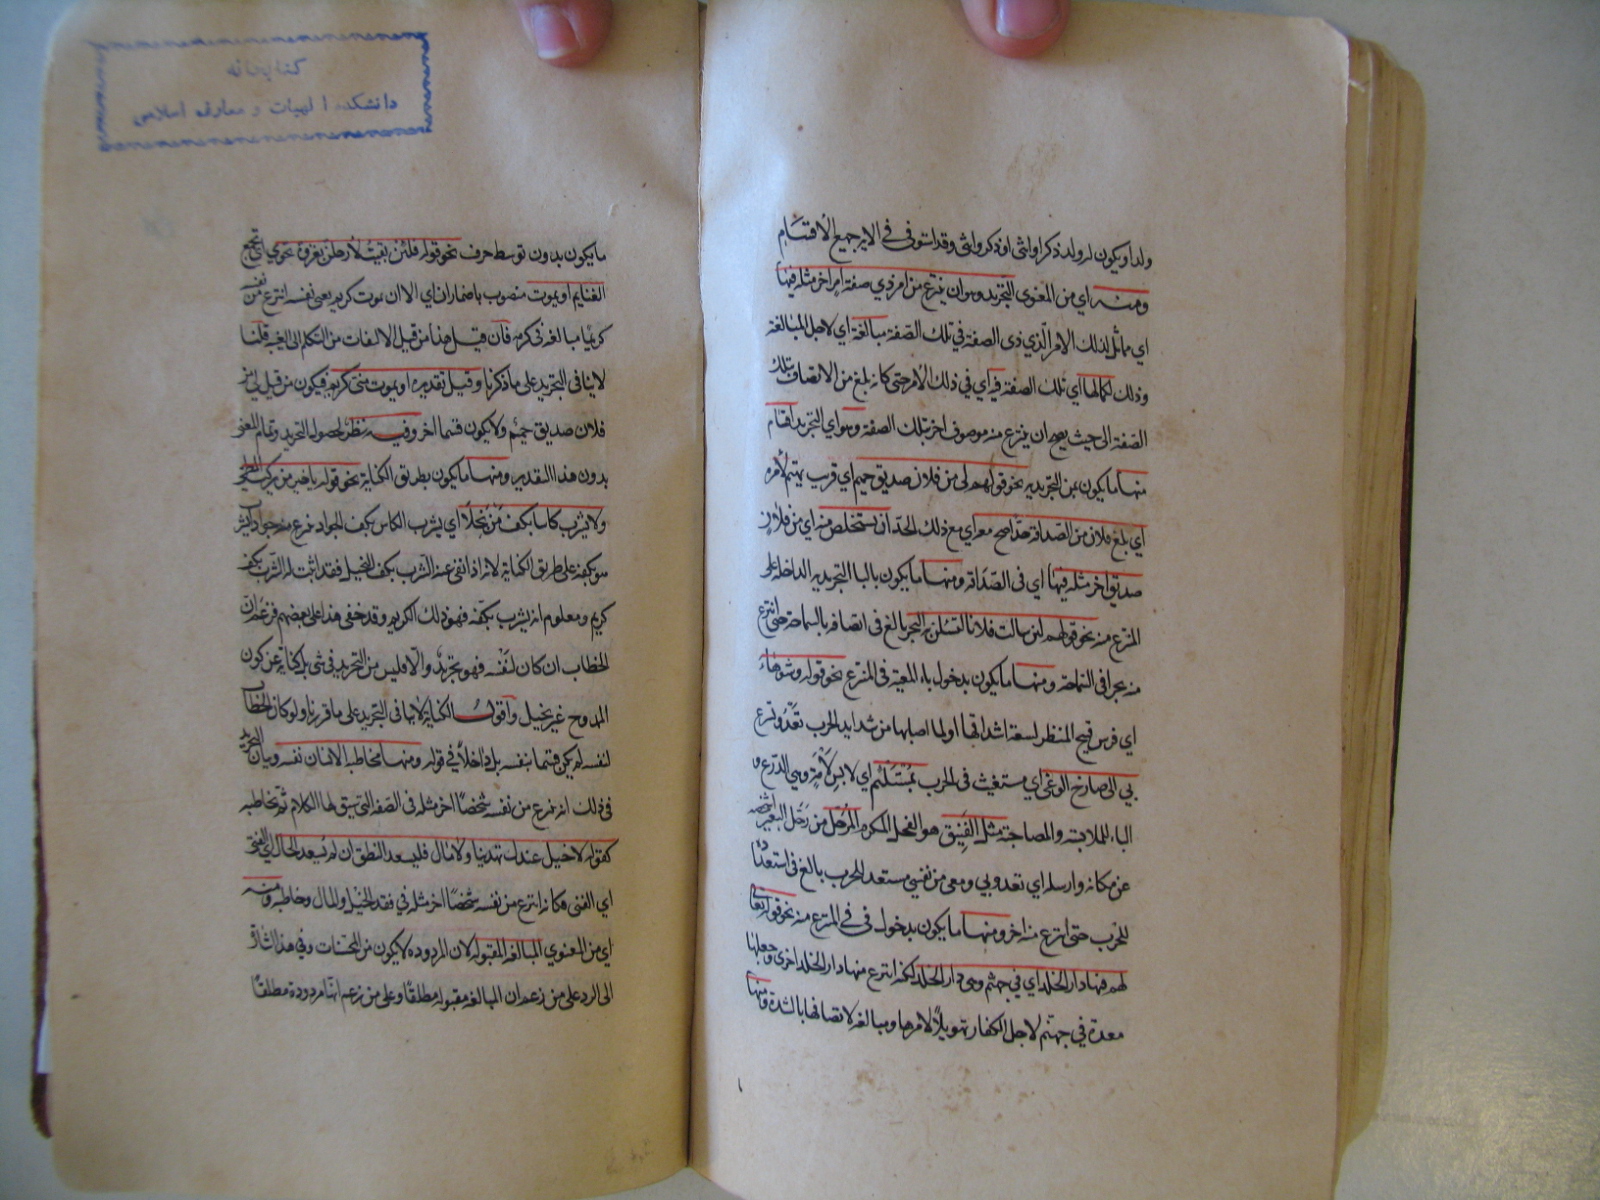 ولدا ويكون له ولد ذكر او انثى او ذكر وانثى وقد استوفى في الآية جميع الأقسام
ومنه اي من المعنوي التجريد وهو ان ينتزع من امر ذي صفة امر اخر مثله فيها
اي مماثل لذلك الامر الذي ذى الصفة في تلك الصفة مبالغة اي لاجل المبالغة
وذلك لكمالها اي تلك الصفة فيه اي في ذلك الأمر حتى كانه بلغ من الاتصاف بتلك
الصفة الى حيث يصح ان ينتزع منه موصوف اخر بتلك الصفة وهو اي التجريد اقسام
منها ما يكون بمن التجريدية نحو قولهم لى من فلان صديق حميم اي قريب يهتم لأمره
اي بلغ فلان من الصداقة حدا صح معه اي مع ذلك الحد ان يستخلص منه اي من فلان
صديق اخر مثله فيها اي فى الصداقة ومنها ما يكون بالبا التجريدية الداخلة على
المنتزع منه نحو قولهم لئن سالت فلانا لتسئلن به البحر بالغ فى اتصافه بالسماحة حتى انتزع
منه بحرا فى السماحة ومنها ما يكون بدخول باء المعية فى المنتزع نحو قوله وشوهاء
اي فرس قبيح المنظر لسعة اشداقها او لما اصابها من شدايد الحرب تعدو تسرع
بي الى صارخ الوغى اي مستغيث فى الحرب بمستلئم اي لابس لأمة وهي الدرع و
الباء للملابسة والمصاحبة مثل الفنيق هو الفحل المكرم المرحل من رحل البعير اشخصه
عن مكانه وارسله اي تعدو بي ومعى من نفسي مستعد للحرب بالغ فى استعداده
للحرب حتى انتزع منه اخر ومنها ما يكون بدخول فى في المنتزع منه نحو قوله تعالى
لهم فيها دار الخلد اي في جهنم وهى دار الخلد لكنه انتزع منها دار الخلد اخرى وجعلها
معدة في جهنم لاجل الكفار تهويلا لامرها ومبالغه لاتصافها بالشدة ومنها
كتابخانه
دانشكده الهيات و معارف اسلامى
ما يكون بدون توسط حرف نحو قوله فلئن بقيت لأرحلن بغزوة نحوي اي تجمع
الغنايم او يموت منصوب باضماران اي الا ان يموت كريم يعنى نفسه انتزع من نفسه
كريما مبالغه فى كرمه فان قيل هذا من قبيل الالتفات من التكلم الى الغيبة قلنا
لا ينافى التجريد على ما ذكرنا وقيل تقديره او يموت منى كريم فيكون من قبيل لى من
فلان صديق حميم ولا يكون قسما اخر وفيه نظر لحصول التجريد وتمام المعنى
بدون هذا التقدير ومنها ما يكون بطريق الكناية نحو قوله يا خير من يركب المطي
ولا يشرب كاسا بكف من بخلا اي يشرب الكاس بكف الجواد انتزع منه جوادا يشرب
هو بكفه على طريق الكناية لانه اذا نفى عنه الشرب بكف البخيل فقد اثبت له الشرب بكف
كريم ومعلوم انه يشرب بكفه فهو ذلك الكريم وقد خفى هذا على بعضهم فزعم ان
الخطاب ان كان لنفسه فهو تجريد والا فليس من التجريد فى شئ بل كناية عن كون
الممدوح غير بخيل واقول الكناية لا ينافى التجريد على ما قررنا ولو كان الخطاب
لنفسه لم يكن قسما بنفسه بل داخلا في قوله ومنها مخاطبة الانسان نفسه وبيان التجريد
فى ذلك انه ينتزع من نفسه شخصا اخر مثله فى الصفه التى سيق لها الكلام ثم يخاطبه
كقوله لا خيل عندك تهديها ولا مال فليسعد النطق ان لم يسعد الحال اي الغنى
اي الغنى فكانه انتزع من نفسه شخصا اخر مثله في فقد الخيل والمال وخاطبه ومنه
اي من المعنوي المبالغه المقبوله لان المردوده لا يكون من المحسنات وفي هذا اشارة
الى الرد على من زعم ان المبالغه مقبوله مطلقا وعلى من زعم انها مردودة مطلقا